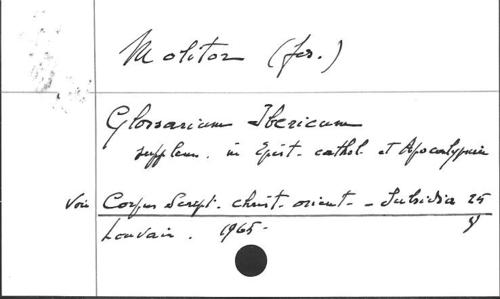 Molitor (Jos.)
Glossarium Ibericum
supplem. in Epist. cathol. et Apocalypsin
Voir Corpus Script. christ. orient. - Subsidia 25
Louvain. 1965